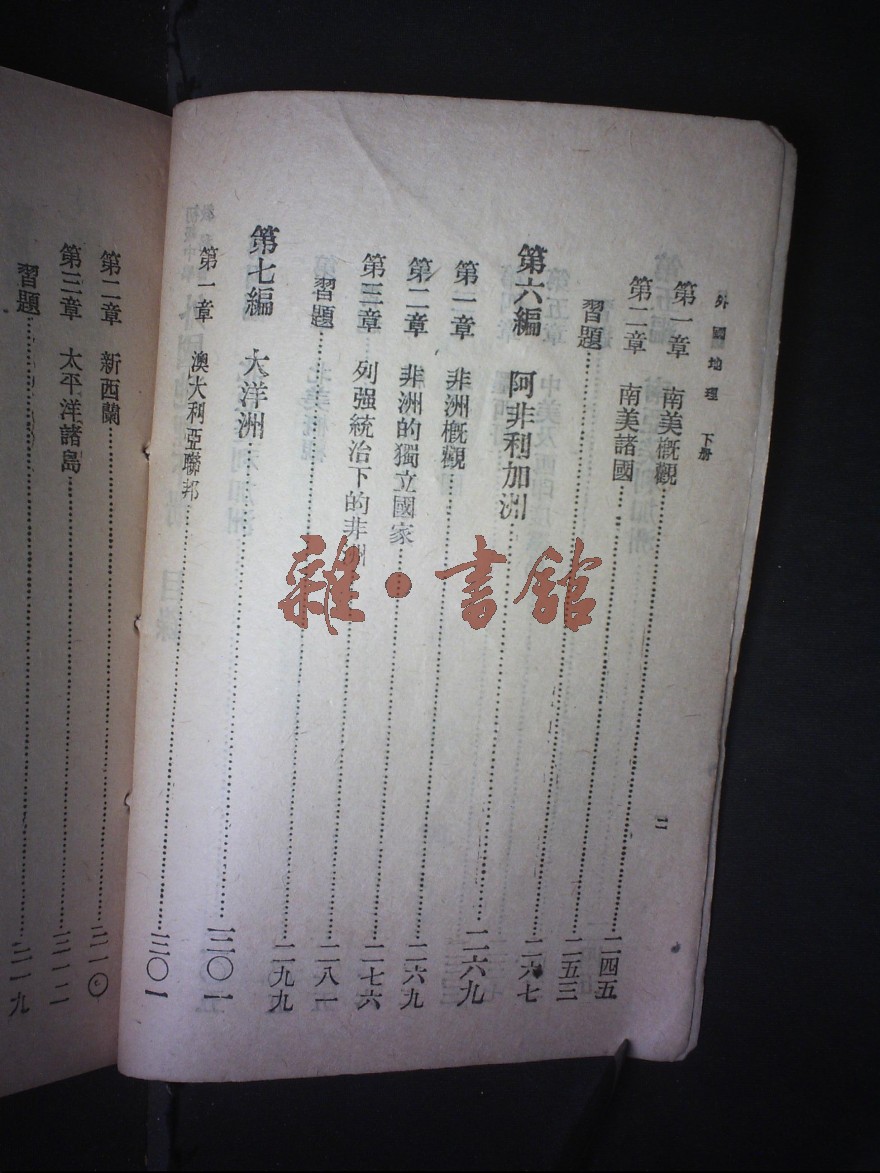 外國地理 下册
二
第一章 南美概觀……二四五
第二章 南美諸國……二五三
習題……二六七
第六編 阿非利加洲……二六九
第一章 非洲概觀……二六九
第二章 非洲的獨立國家……二七六
第三章 列强統治下的非洲……二八一
習題……二九九
第七編 大洋洲……三〇一
第一章 澳大利亞聯邦……三〇一
第二章 新西蘭……三一〇
第三章 太平洋諸島……三一二
習題……三一九
雜·書館